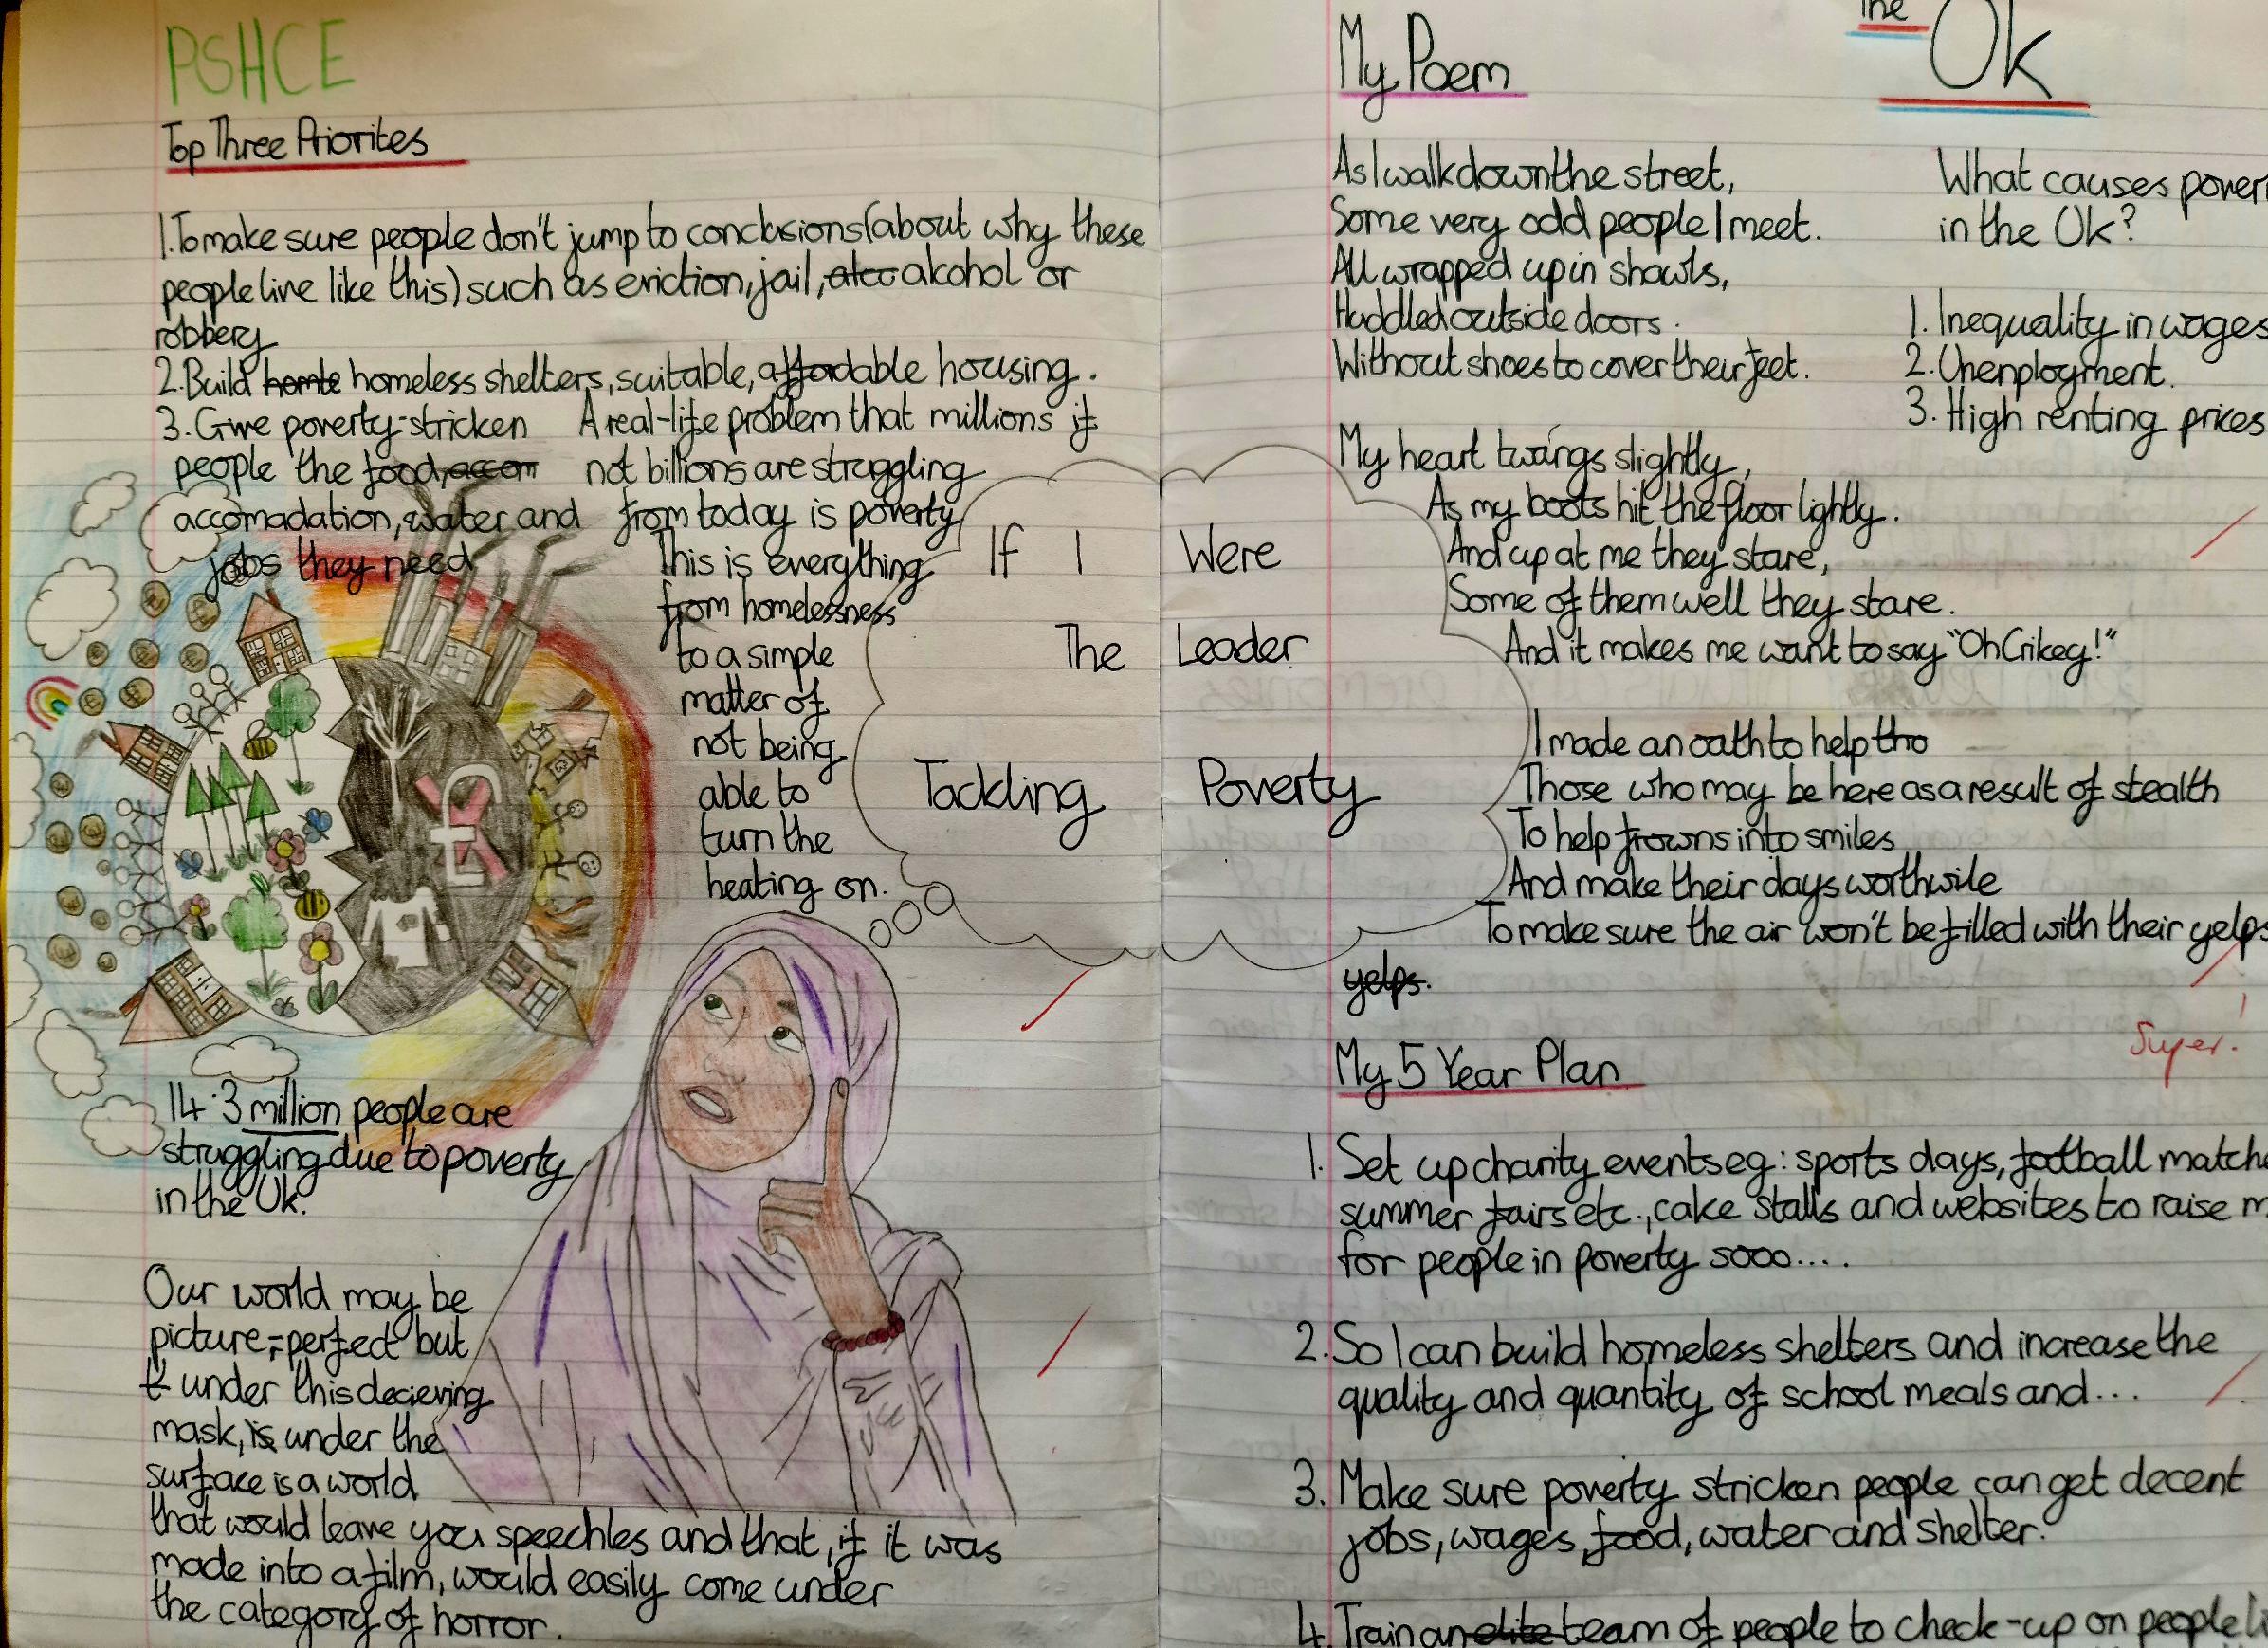 PSHCE
Top Three Priorites
1. To make sure people don't jump to conclusions (about why these
people live like this) such as eviction, jail, alco alcohol or
robbery
2. Build homle homeless shelters, suitable, affordable housing.
3. Give poverty-stricken
people the food, accom
accomadation, water and
jobs they need
A real-life problem that millions if
not billions are struggling
from today is poverty
This is everything
from homelessness
to a simple
matter of
not being
able to
turn the
heating on.
If I Were
The Leader
Tackling Poverty
14.3 million people are
struggling due to poverty
in the Uk.
Our world may be
picture-perfect but
t under this decieving
mask, is under the
surface is a world
that would leave you speechles and that, if it was
made into a film, would easily come under
the category of horror.
My Poem
As I walk down the street,
Some very odd people I meet.
All wrapped up in shawls,
Huddled outside doors.
Without shoes to cover their feet.
My heart twangs slightly,
As my boots hit the floor lightly.
And up at me they stare,
Some of them well they stare.
And it makes me want to say "Oh Crikey!"
I made an oath to help tho
Those who may be here as a result of stealth
To help frowns into smiles
And make their days worthwile
To make sure the air won't be filled with their yelps
yelps.
Super!
The Ok
What causes pover
in the Ok?
1. Inequality in wages
2. Unenployment.
3. High renting prices
My 5 Year Plan
1. Set up charity events eg: sports days, football matche
summer fairs etc., cake stalls and websites to raise m
for people in poverty sooo....
2. So I can build homeless shelters and increase the
quality and quantity of school meals and...
3. Make sure poverty stricken people can get decent
jobs, wages, food, water and shelter.
4. Train an elite team of people to check-up on people